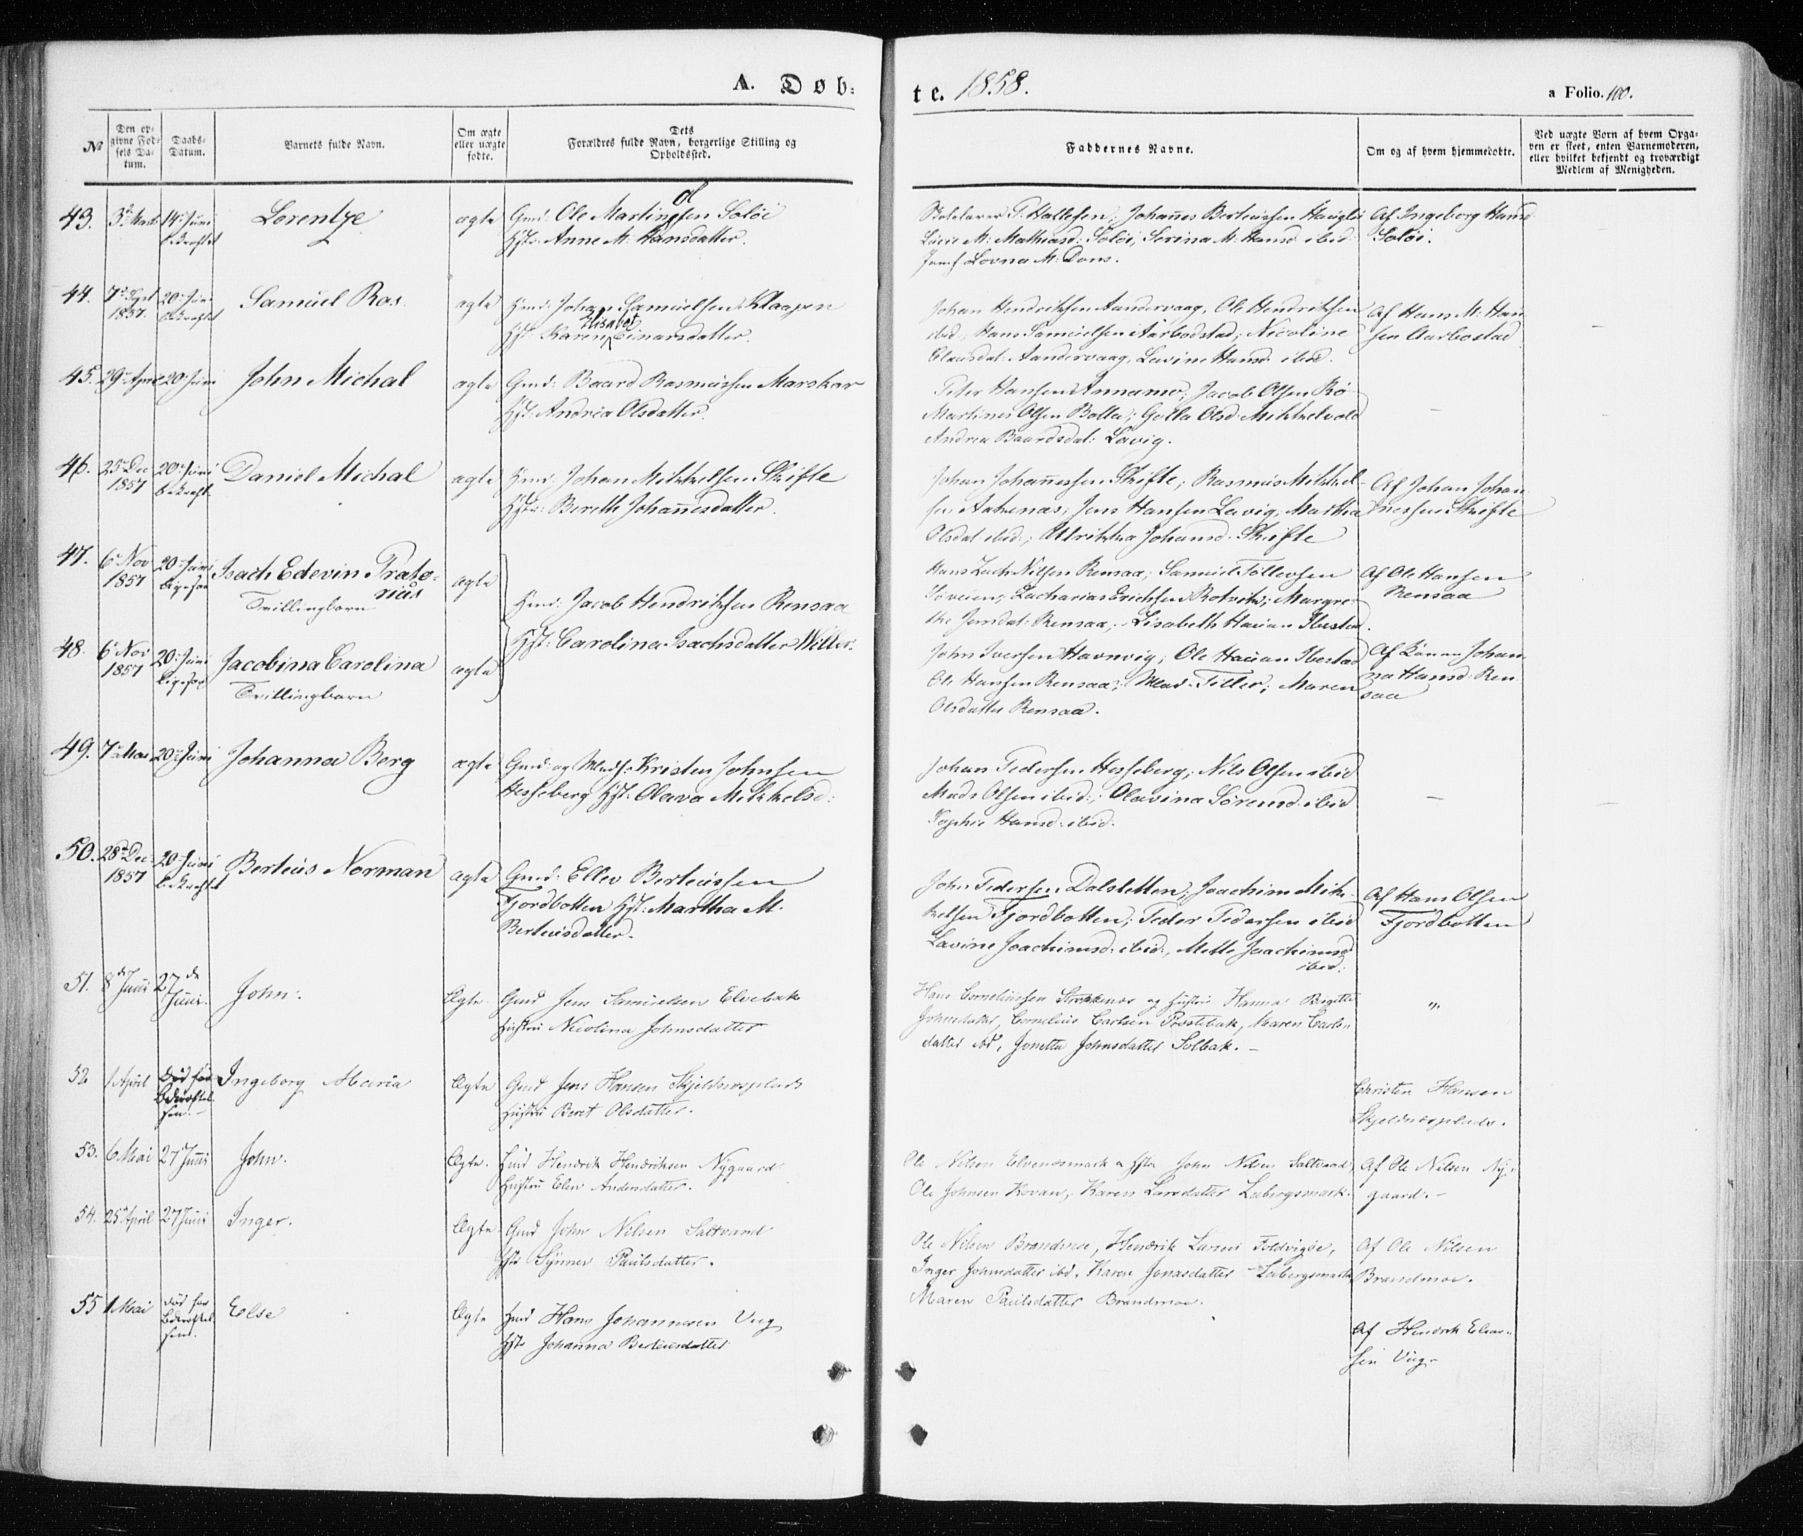 A. Døb:
te. 1858.
a Folio. 100.
No
Den opgivne Fødsels Datum.
Daabs-Datum.
Barnets fulde Navn.
Om ægte eller uægte fødte.
Dets Forældres fulde Navn, borgerlige Stilling og Opholdssted.
Faddernes Navne.
Om og af hvem hjemmedøbte.
Ved uægte Børn af hvem Opgaven er skeet, enten Barnemoderen, eller hvilket bekjendt og troværdigt Medlem af Menigheden.
43. 14 Juni Lorentze ægte Gmd: Ole Martin Soløi
Hst: Anne M: Hansdatter.
Hallesen; Johannes Berteussen
M: Mathiasd: Soløi, Serina M. Hansd ibid:
Lovna M: Dons.
Af Ingeborg Hansd
Soløi.
44. 7 Sept 1857. 20 Juni Samuel Ras. ægte Johan Samuelsen Klaapen
Hst Karen Elisabet Einarsdatter.
Johan Hendriksen Aandervaag, Ole Hendriksen
ibid, Hans Samuelsen Aarbodstad; Nicoline
Clausdat: Aandervaag, Lavine Hansd: ibid.
Af Hans M: Han
sen Aarbostad
45. 29 April 20 Juni John Michal ægte Gmd: Baard Rasmussen Marskar
Hst: Andrea Olsdatter.
Peter Hansen Annamo; Jacob Olsen Rø
Martines Olsen Bolla; Golla Olsd Mikkelvold
Andrea Baardsdat: Lavig.
46. 25 Dec 1857 20 Juni bekræft. Daniel Michal ægte Johan Mikkelsen Skifte
Hst: Bereth Johannesdatter.
Johan Johannessen Skifte; Rasmus Mikkel
sen Aakenæs; Jens Hansen Lavig, Martha
Olsdat ibid; Ulrikka Johansd. Skifte
Af Johan Johan
nessen Skifte
47. 6 Nov 1857 20 Juni ligesaa Isach Edevin Præto=
rius
Tvillingbarn
ægte
Jacob Hendriksen Rensaa
Hst: Carolina Isachsdatter
Nilsen Rensaa; Samuel Tollevsen
Zacharias Erichsen Rotvik; Margre=
the Jensdat: Rensaa; Lisabeth Ibestad.
Af Ole Hansen
Rensaa
48. 6 Nov 1857 20 Juni ligesaa Jacobina Carolina
Tvillingbarn
ægte
John Iversen Havnvig; Ole Ibestad
Ole Hansen Rensaa; Mad. Teller; Maren
Olsdatter Rensaa.
Johan
na Hansd: Ren
saa
49. 20 Juni Johanna Berg ægte Gmd: og Kristen Johnsen
Hesseberg Hst: Olava Mikkelsd:
Johan Pedersen Hesseberg; Nils Olsen ibid
Mads Olsen ibid; Olavina Sørensd. ibid
Sophie Hansd. ibid.
50. 28 Dec 1857 20 Juni bekræftet Berteus Norman ægte Gmd: Ellev Berteussen
Fjordbotten Hst: Martha M.
Berteusdatter.
John Pedersen Dalsletten; Joachim Mik=
kelsen Fjordbotten; Peder Pedersen ibid
Lavine Joachimsd: ibid; Mette Joachimsd
ibid:
Af Hans Olsen
Fjordbotten
51. 8de Juni 27de Juni. John. Ægte. Gmd Jens Samuelsen Elvebak
Hustru Nicolina Johnsdatter
Hans Corneliussen og Hustru Hanna Birgitte
Johnsdatter, Cornelius Carlsen Prestebak, Maren Carls
datter ibd, Jonetta Johnsdatter Solbak. –
"
52 1 April Død før Bekræftelsen. – Ingeborg Maria Ægte Gmd Jens Hansen Skjeldnæsplads
Hustru Beret Olsdatter.
Christen Hansen
Skjeldnæsplads.
53. 6 Mai 27 Juni John. Ægte. Hendrik Hendriksen Nygaard
Hustru Elen Andersdatter.
Ole Nilsen Elvenesmark John Nilsen Saltvand,
Ole Johnsen Kovan, Karen Larsdatter Labergsmark.
Af Ole Nilsen Ny=
gaard. –
54. 25 April 27 Juni Inger. Ægte Gmd John Nilsen Saltvand
Hst Synnev Paulsdatter.
Ole Nilsen Brandmoe, Hendrik Larsen Foldvigøe,
Inger Johnsdatter ibd, Karen Jonasdatter Labergsmark,
Maren Paulsdatter Brandmoe.
Af Ole Nilsen
Brandmoe.
55 1 Mai død før Bekræftelsen. Else Ægte Hans Johannesen Vug
Hst Johanna Berteusdatter
Af Hendrik Elias=
sen Vug